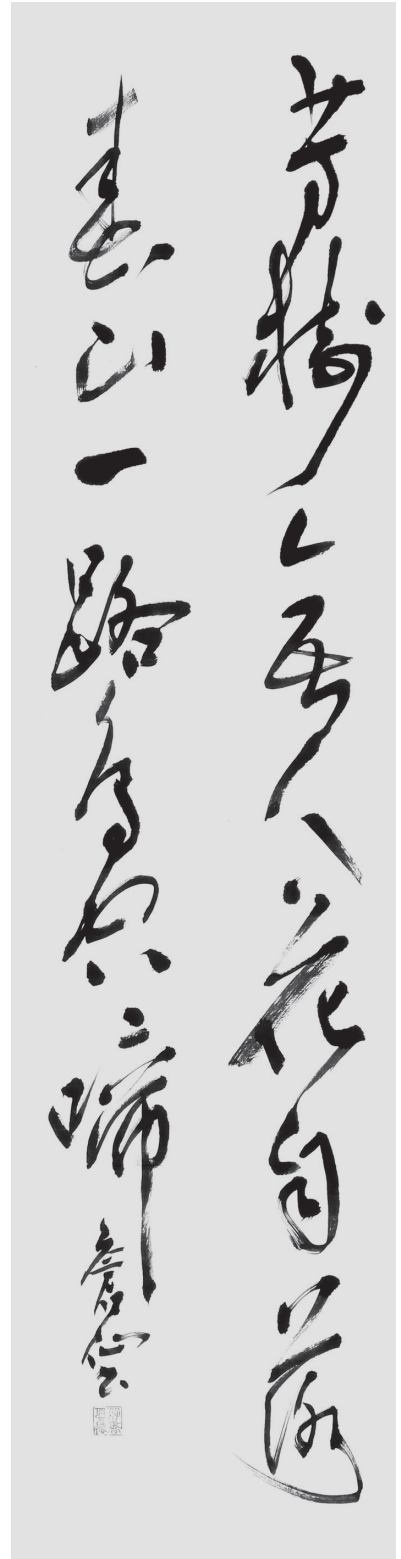 芳樹無人花自落
春山一路鳥空啼